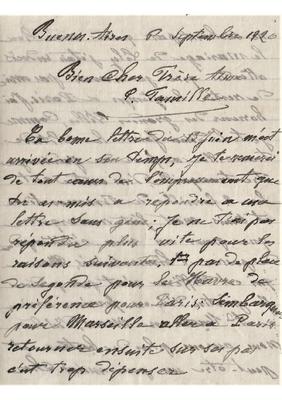 Buenos-Aires 8 Septembre 1920
Bien Cher Frère Aimé
& Famille
Ta bonne lettre du Juin m'est
arrivée en son temps, Je te remercie
de tout cœur de l'empressement que
tu as mis a repondre a ma
lettre sans gêne; Je ne t'ai pas
repondu plus vite pour les
raisons suivantes pas de place
de segonde pour le Havre de
préférence pour Paris; s'embarquer
pour Marseille aller a Paris
retourner ensuite sur ses pas
c'est trop dépenser